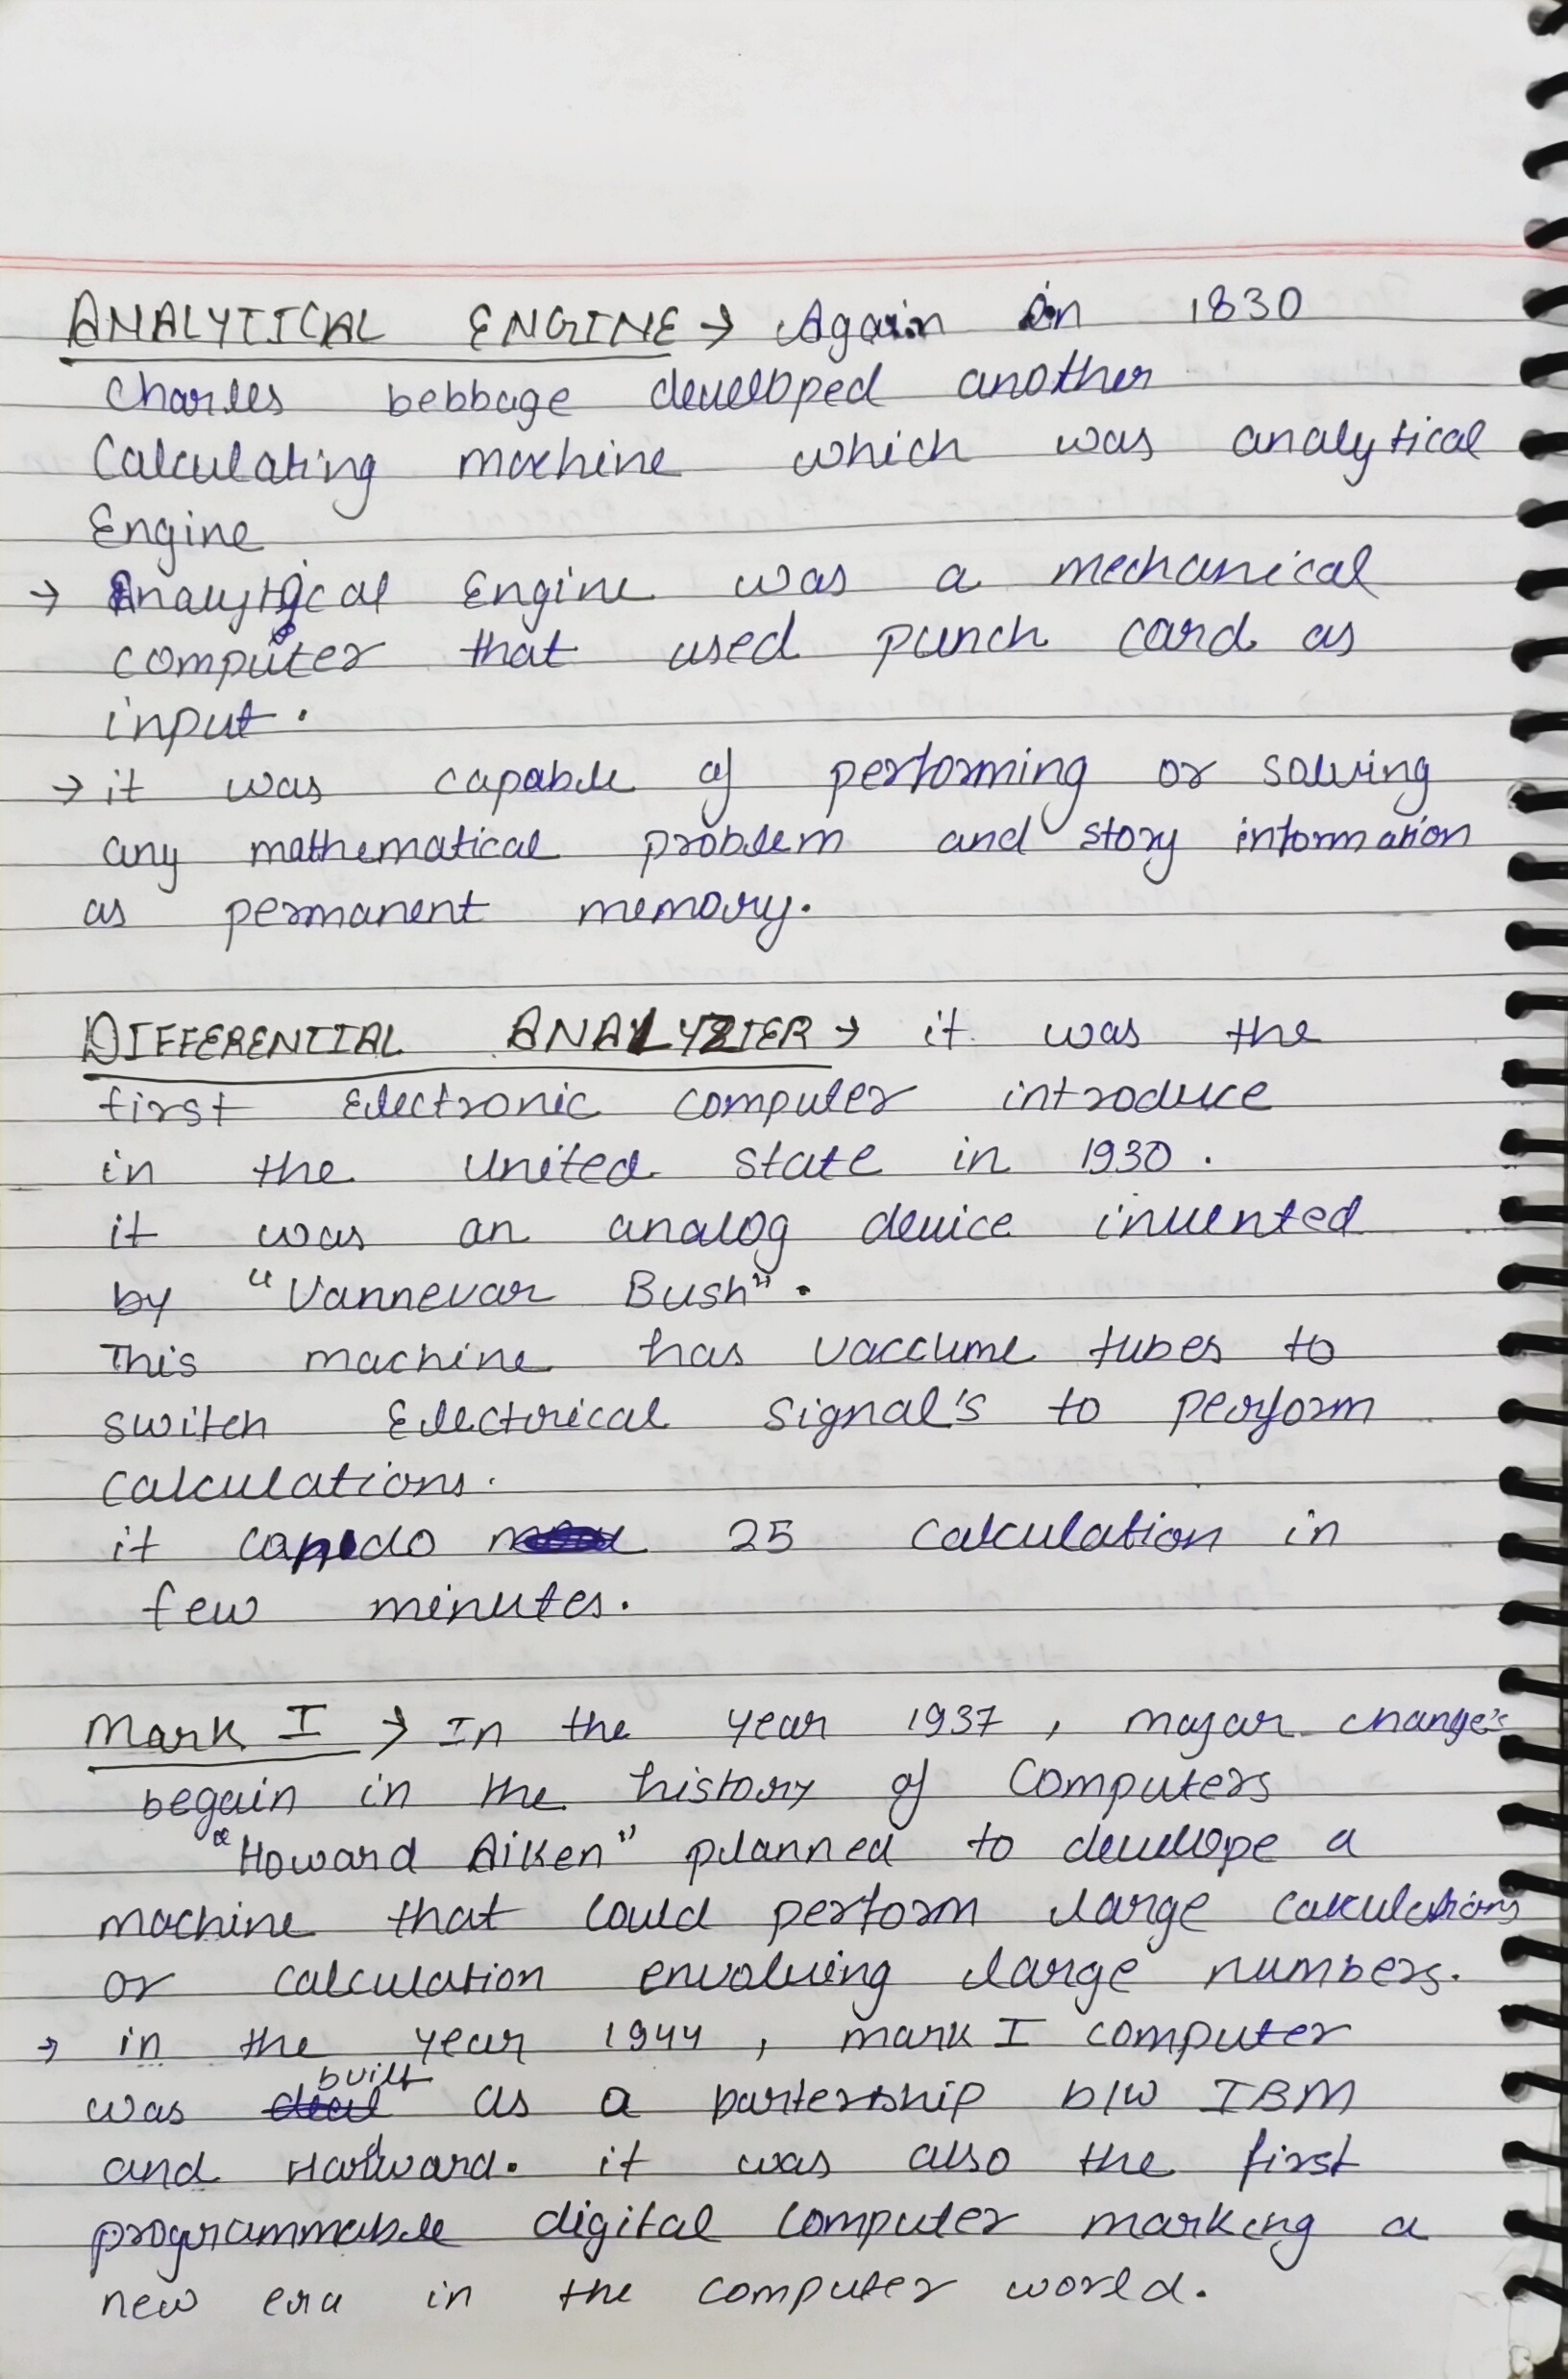 ANALYTICAL ENGINE → Again in 1830
Charles bebbage developed another
Calculating machine which was analytical
Engine
→ Analytical Engine was a mechanical
computer that used punch card as
input.
→ it was capable of performing or solving
any mathematical problem and story information
as permanent memory.
DIFFERENTIAL ANALYZIER → it was the
first Electronic computer introduce
in the United state in 1930.
it was an analog device invented
by "Vannevar Bush".
This machine has vaccume tubes to
switch Electrical signal's to perform
calculations.
it can do 25 calculation in
few minutes.
Mark I → In the year 1937, majar change's
begain in the history of Computers
"Howard Aiken" planned to develope a
machine that could perform large calculations
or calculation envolving large numbers.
→ in the year 1944, mark I computer
was built as a partership b/w IBM
and Harward. it was also the first
programmable digital computer marking a
new era in the computer world.